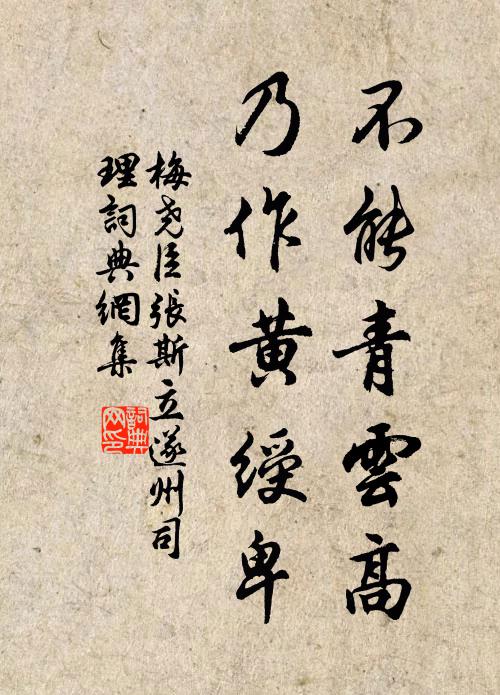 不能青雲高
乃作黃綬卑
梅尧臣張斯立遂州司
理詞典網集
詞典
网印